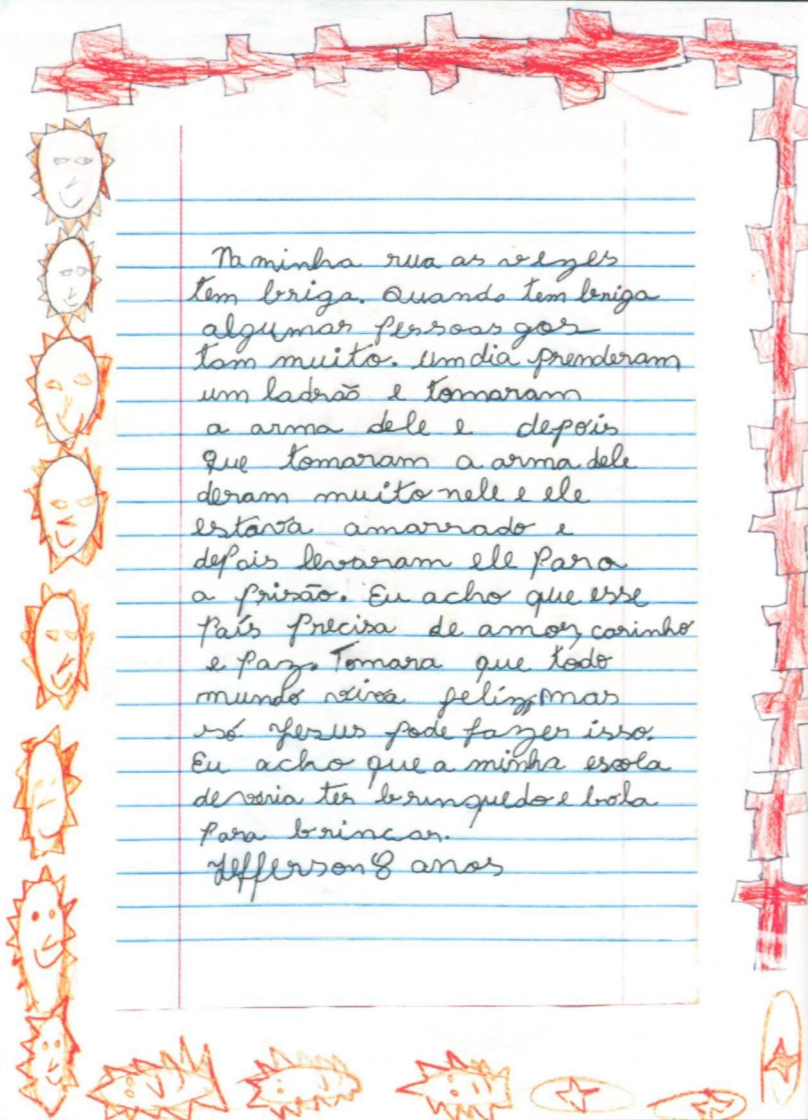 Na minha rua as vezes
tem briga. Quando tem briga
algumas pessoas gos
tam muito. Um dia prenderam
um ladrão e tomaram
a arma dele e depois
que tomaram a arma dele
deram muito nele e ele
estava amarrado e
depois levaram ele para
a prisão. Eu acho que esse
país precisa de amor, carinho
e paz. Tomara que todo
mundo viva feliz, mas
só Jesus pode fazer isso.
Eu acho que a minha escola
deveria ter brinquedo e bola
para brincar.
Jefferson 8 anos